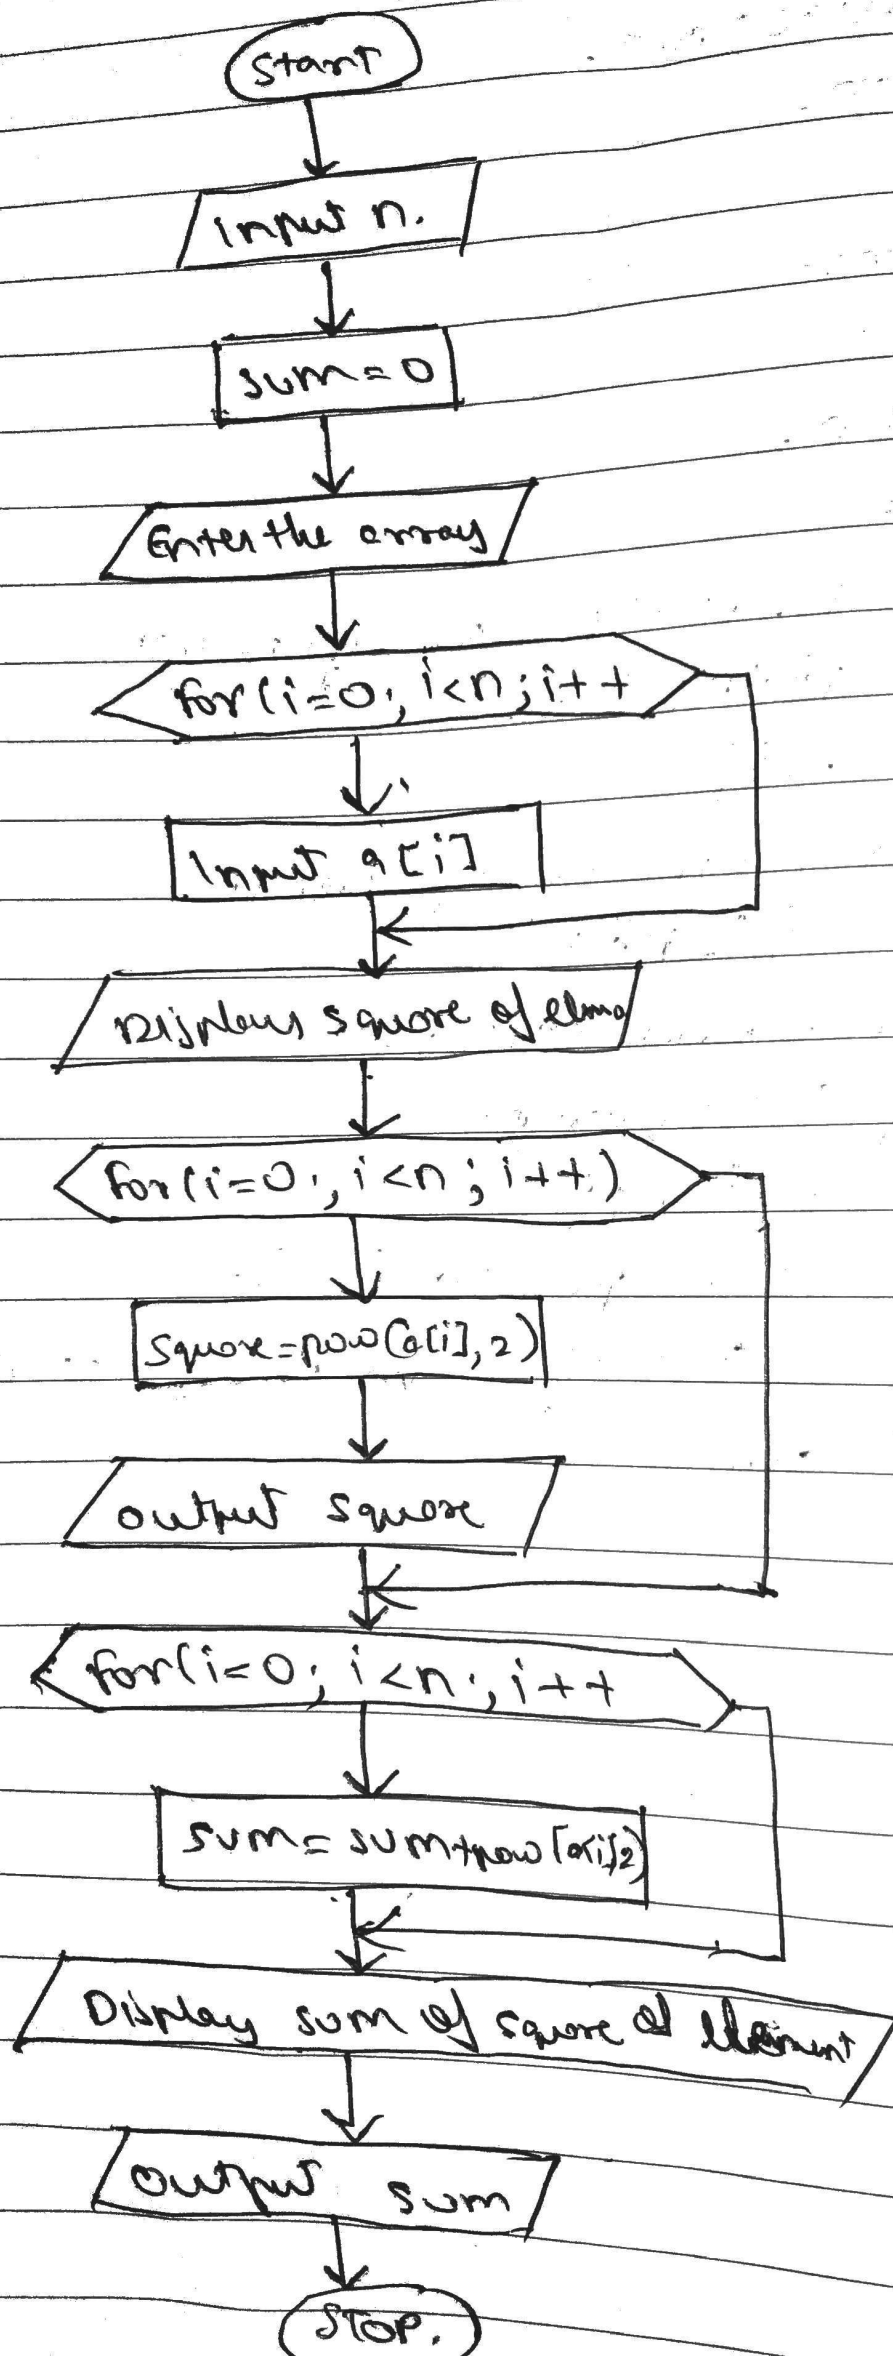 Start
input n.
sum=0
Enter the array
for(i=0; i<n; i++
Input a[i]
Display square of elmo
for(i=0; i<n; i++)
square=pow(a[i],2)
output square
for(i=0; i<n; i++
sum=sum+pow[a[i]2)
Display sum of square of
output sum
STOP.